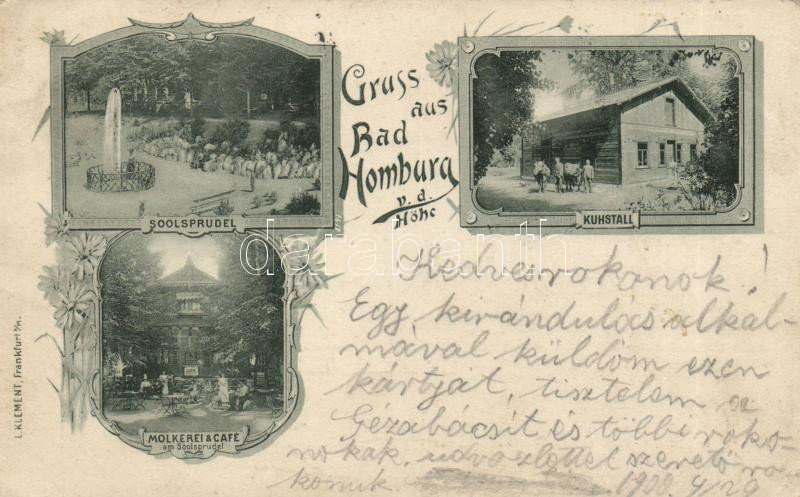 SOOLSPRUDEL
Gruss
aus
Bad
Homburg
v. d.
Höhe
KUHSTALL
MOLKEREI & CAFÉ
am Soolsprudel
L. KLEMENT, Frankfurt a/M.
darabanth
Kedves rokonok!
Egy kirándulás alkal-
mával küldöm ezen
kártyát, tisztelem a
Gézabácsit és többi roko-
nokak, udvözlettel szerető ro
konuk 1900